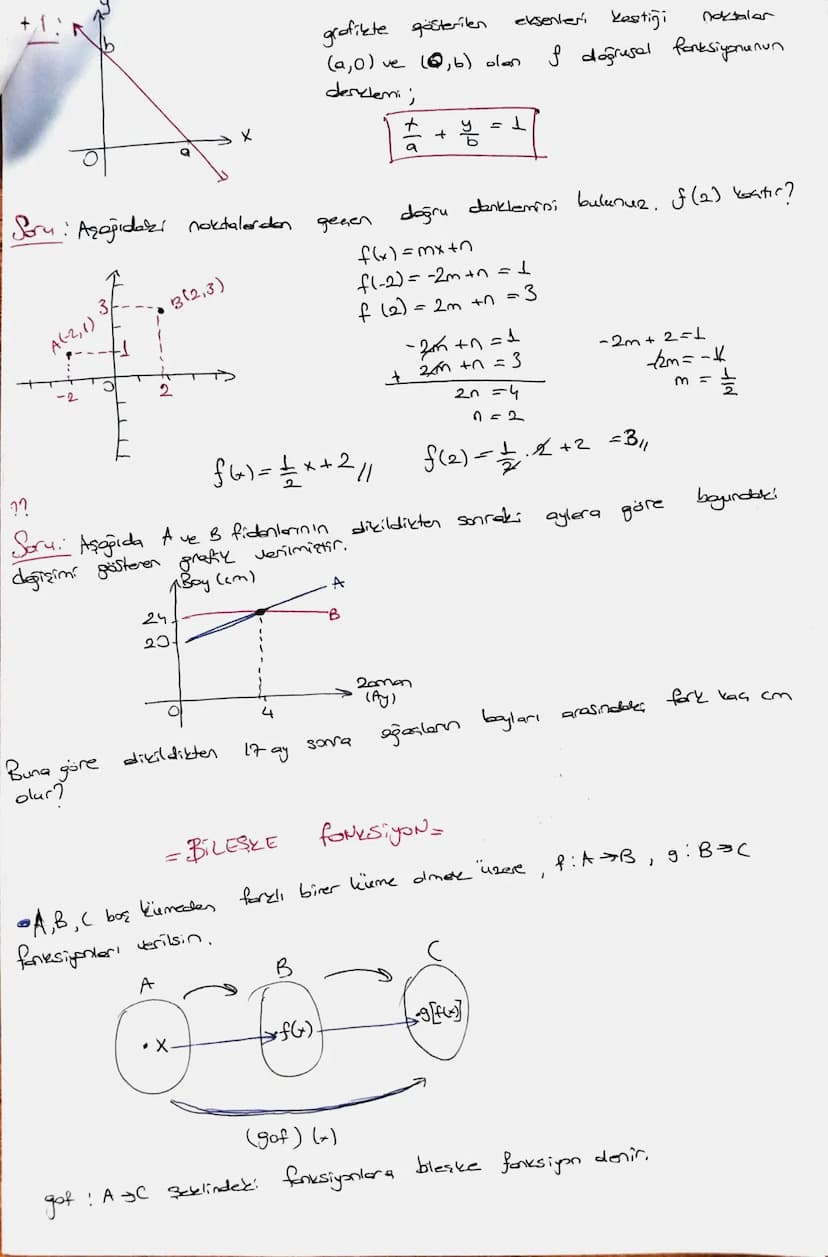 +1:
y
b
a
x
O
grafikte gösterilen eksenleri kestiği noktalar
(a,0) ve (0,b) olan f doğrusal fonksiyonunun
denklemi;
x/a + y/b = 1
Soru: Aşağıdaki noktalardan geçen doğru denklemini bulunuz. f(2) kaçtır?
f(x)=mx+n
f(-2) = -2m+n = 1
f(2) = 2m+n = 3
3
B(2,3)
A(-2,1)
1
-2
O
2
-2m+n=1
+ 2m+n=3
2n=4
n=2
-2m+2=1
-2m=-1
m=1/2
f(x)=1/2 x+2//
f(2)=1/2.2+2=3//
??
Soru: Aşağıda A ve B fidanlarının dikildikten sonraki aylara göre boyundaki
değişimi gösteren grafik verilmiştir.
Boy (cm)
A
24
B
20
Zaman
(Ay)
O
4
Buna göre dikildikten 17 ay sonra ağaçların boyları arasındaki fark kaç cm
olur?
=BİLEŞKE FONKSİYON=
•A,B,C boş kümeden farklı birer küme olmak üzere, f:A→B, g:B→C
fonksiyonları verilsin.
A
B
C
•x
f(x)
•g[f(x)]
(gof)(x)
gof : A→C şeklindeki fonksiyonlara bleşke fonksiyon denir.